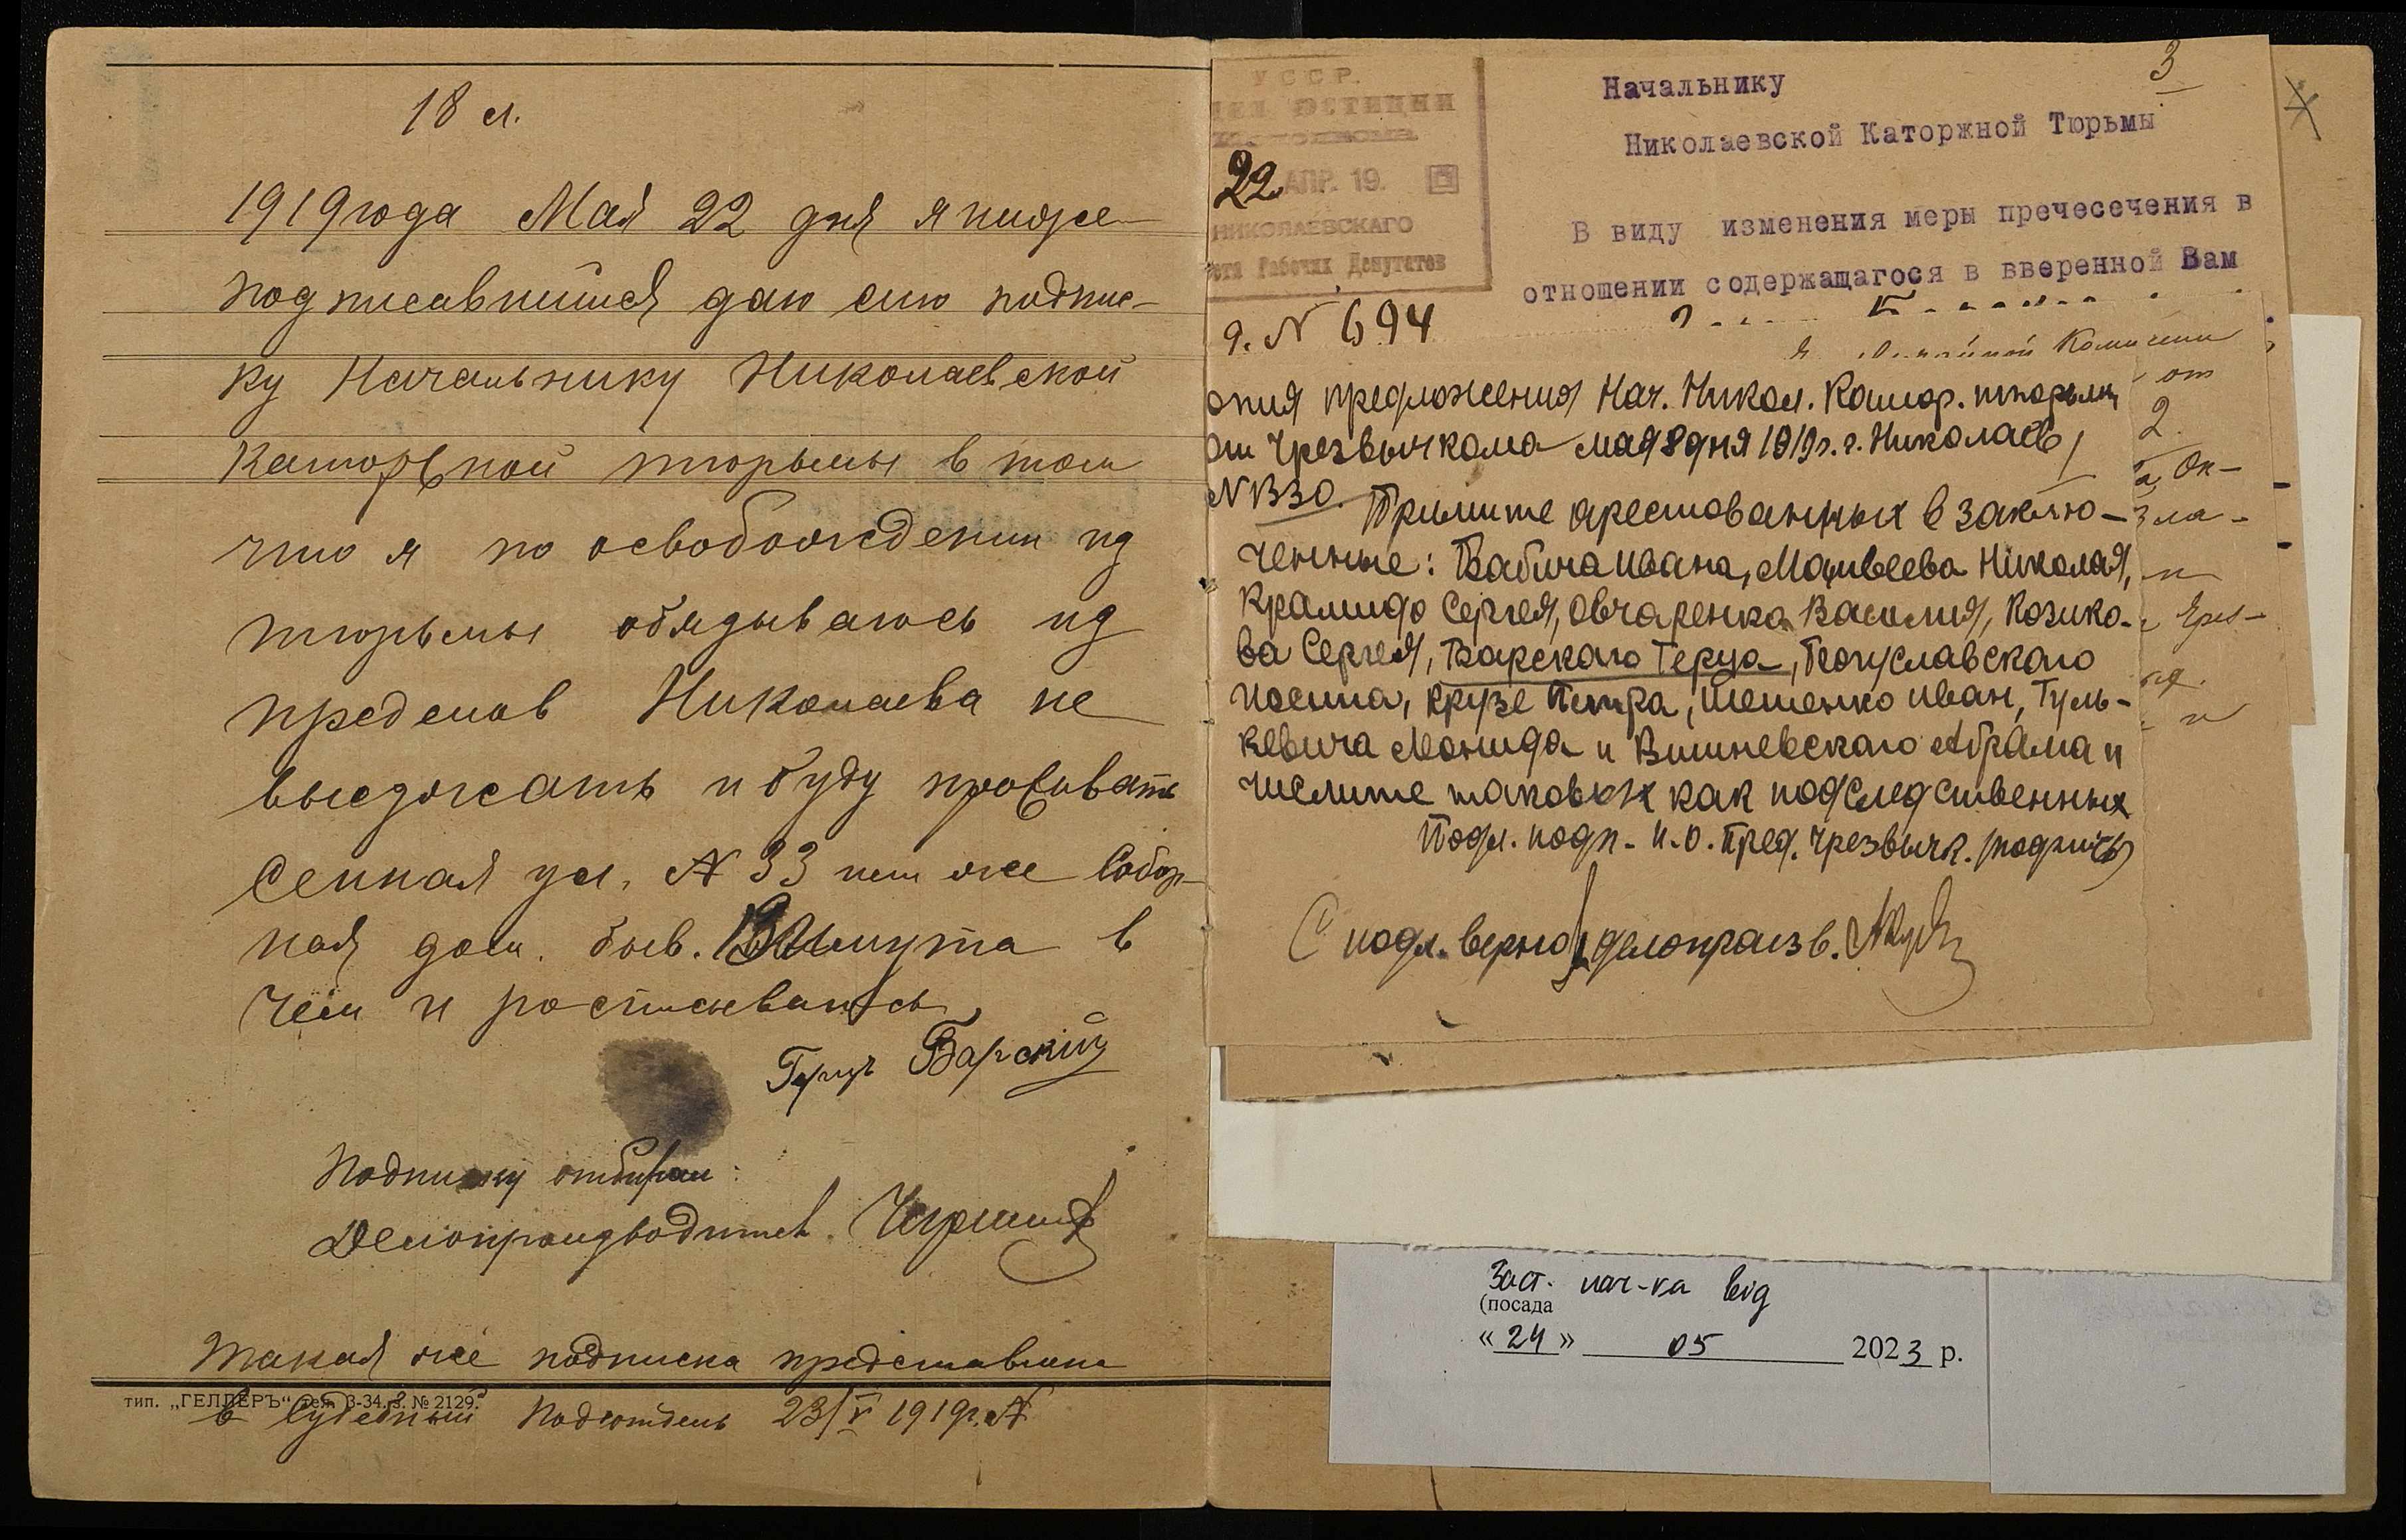 18 л.
1919 года Мая 22 дня я ниже
подписавшийся даю сию подпис-
ку Начальнику Николаевской
Каторжной тюрьмы в том
что я по освобождении из
тюрьмы обязываюсь из
пределов Николаева не
выезжать и буду проживать
Сенная ул. № 33 или же Собор-
ная дом. быв. в
чем и росписываюсь
Герц Барский
Подписку отбирал:
Делопроизводитель
Такая же подписка представлена
тип. „ГЕЛЛЕРЪ“ тел. 3-34. З. № 2129.
в Судебный Подотдел 23/V 1919 г. №
3
У С С Р.
ЮСТИЦИИ
22 АПР. 19.
НИКОЛАЕВСКАГО
Рабочих Депутатов
9. № 694
Начальнику
Николаевской Каторжной Тюрьмы
В виду изменения меры пречесечения в
отношении содержащагося в вверенной Вам
Комиссии
от
2
Ок-
зла-
и
Чрез-
и
опия предложения Нач. Никол. Катор. тюрьмы
от Чрезвычкома мая 8 дня 1919 г. г. Николаев
№ 1330. Примите арестованных в заклю-
ченные: Бабича Ивана, Матвеева Николая,
Сергея, Овчаренка Василия, Козико-
ва Сергея, Барского Герца, Богуславского
Иосипа, Крузе Петра, Шешенко Иван, Гуль-
кевича Леонида и Вишневского Абрама и
числите таковых как подследственных
Подл. подп. И.О. Пред. Чрезвычк. (подпись)
С подл. верно: делопроизв.
Заст. нач-ка від
(посада
« 24 » 05 2023 р.